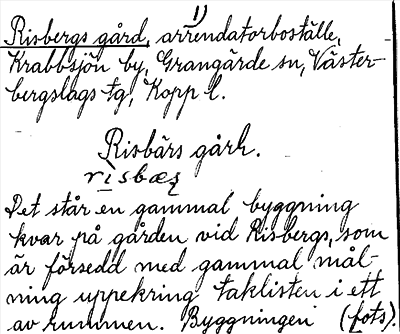 1)
Risbergs gård, arrendatorboställe,
Krabbsjön by, Grangärde sn, Väster-
bergslags tg, Kopp l.
Risbärs gårh.
risbæʂ
Det står en gammal byggning
kvar på gården vid Risbergs, som
är försedd med gammal mål-
ning uppekring taklisten i ett
av rummen. Byggningen (fots).